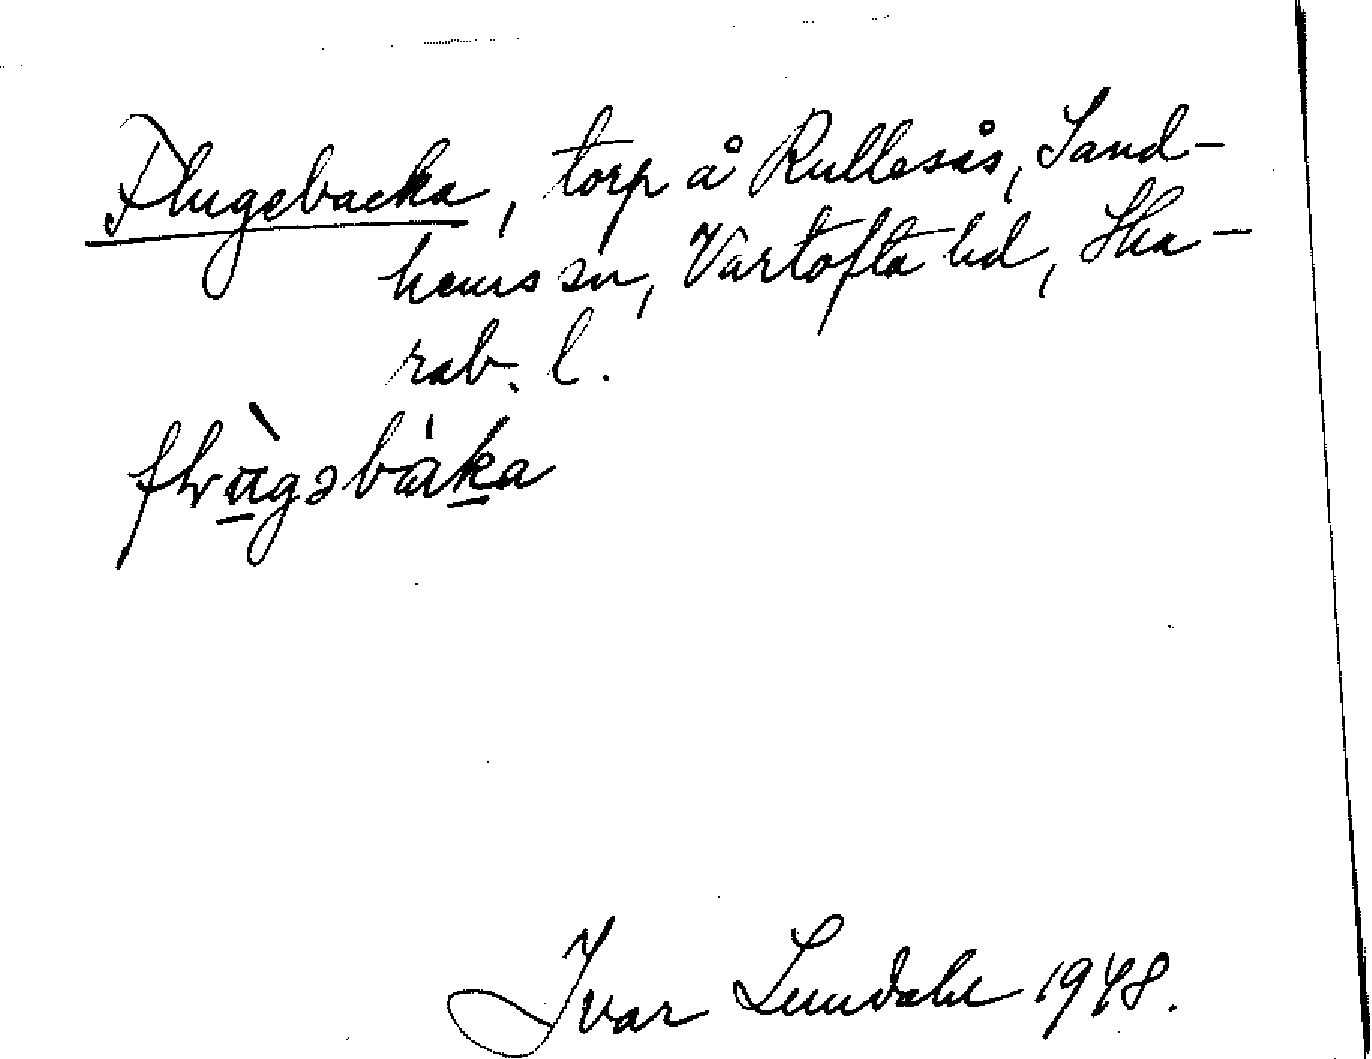 Flugebacka, torp å Rullesås, Sand-
hems sn, Vartofta hd, Ska-
rab. l.
Ivar Lundahl 1948.